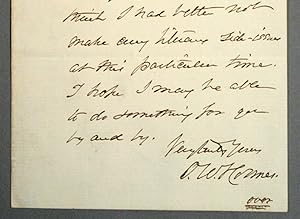 think I had better not
make any literary side-issues
at this particular time.
I hope I may be able
to do something for you
by and by.
Very truly Yours
O. W. Holmes.
over